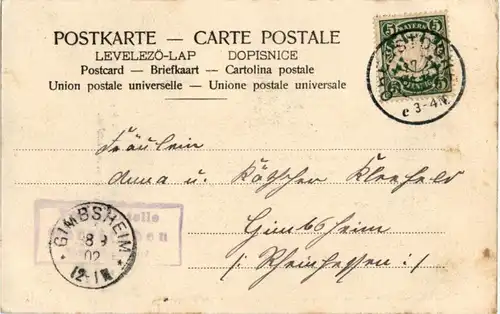 POSTKARTE — CARTE POSTALE
LEVELEZÖ-LAP DOPISNICE
Postcard — Briefkaart — Cartolina postale
Union postale universelle — Unione postale universale
BAYERN
5 5
3-4N
Fräulein
Anna u. Käthchen Kleefeld
Gimbsheim
/: Rheinhessen :/
GIMBSHEIM
8 9
02
12-1N